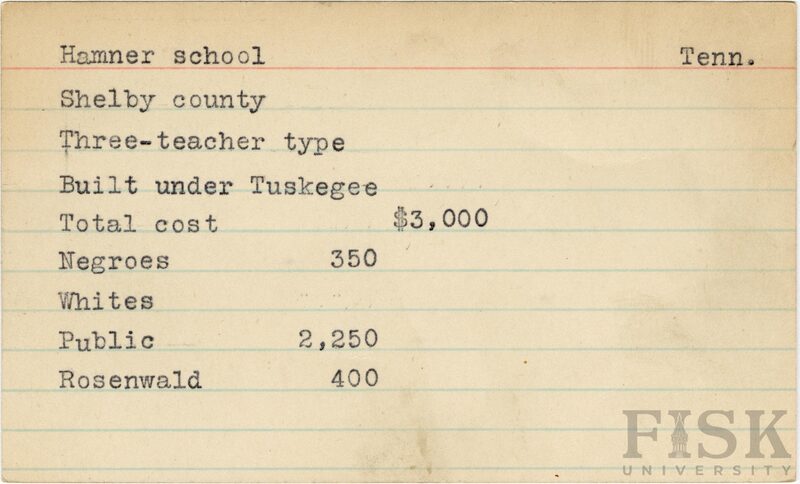 Hamner school Tenn.
Shelby county
Three-teacher type
Built under Tuskegee
Total cost $3,000
Negroes 350
Whites
Public 2,250
Rosenwald 400
FISK
UNIVERSITY